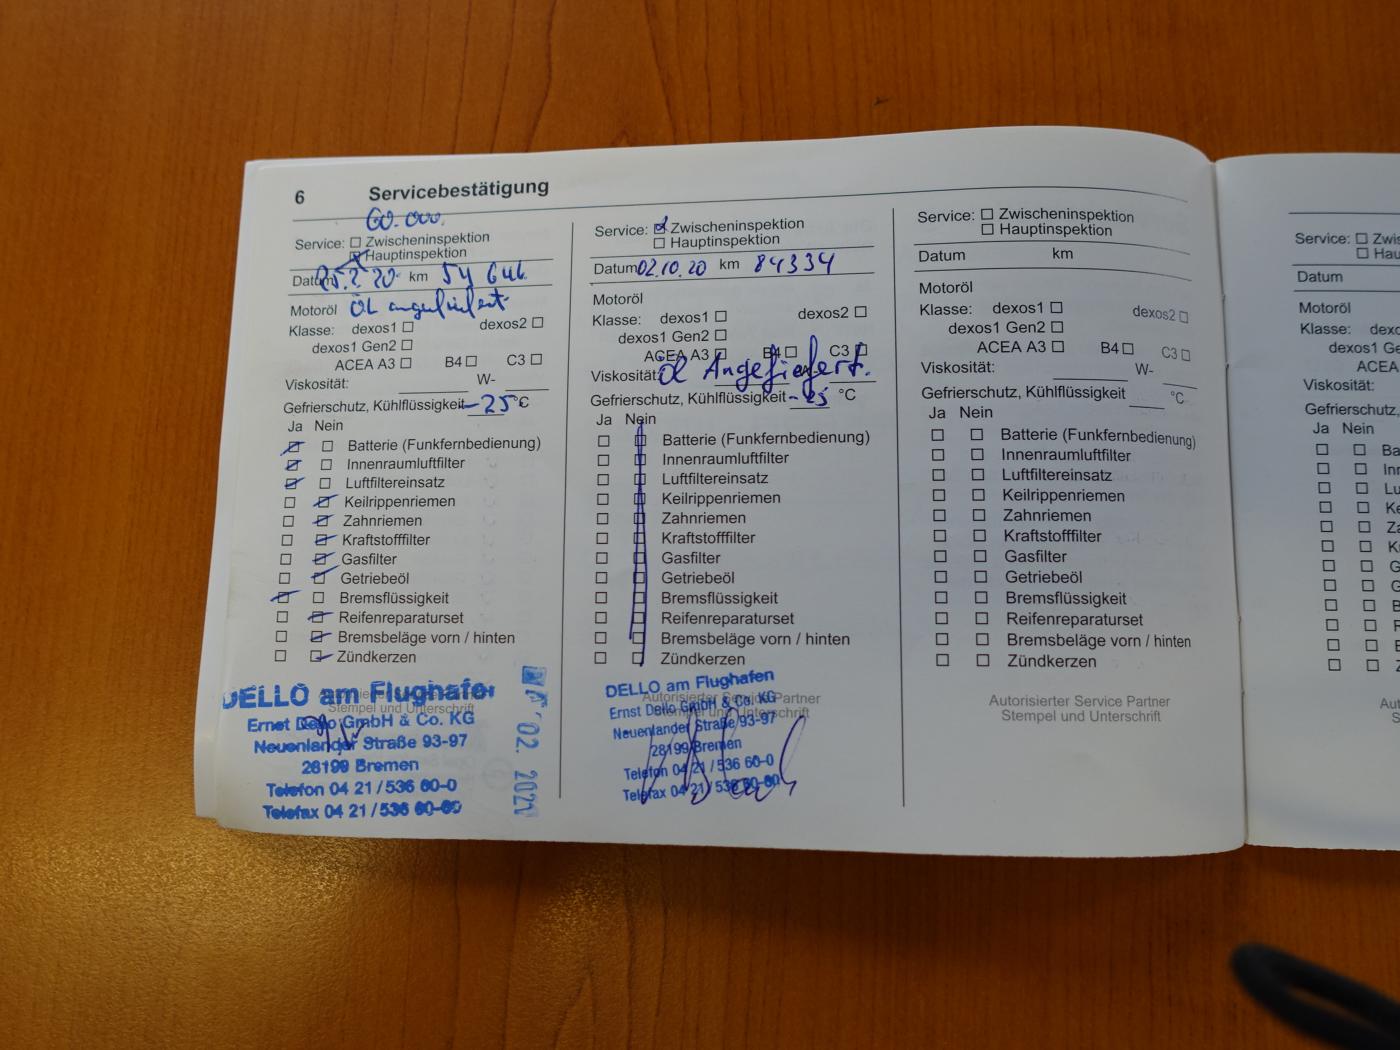 6 Servicebestätigung
60.000.
Service: Zwischeninspektion
Hauptinspektion
Datum 25.2.20 km 54
Motoröl ÖL angeliefert
Klasse: dexos1 dexos2
dexos1 Gen2
ACEA A3 B4 C3
Viskosität: W-
Gefrierschutz, Kühlflüssigkeit -25 °C
Ja Nein
Batterie (Funkfernbedienung)
Innenraumluftfilter
Luftfiltereinsatz
Keilrippenriemen
Zahnriemen
Kraftstofffilter
Gasfilter
Getriebeöl
Bremsflüssigkeit
Reifenreparaturset
Bremsbeläge vorn / hinten
Zündkerzen
Autorisierter Service Partner
Stempel und Unterschrift
DELLO am Flughafen
Ernst Dello GmbH & Co. KG
Neuenlander Straße 93-97
28199 Bremen
Telefon 04 21 / 536 60-0
Telefax 04 21 / 536 60-60
02. 2021
Service: Zwischeninspektion
Hauptinspektion
Datum 02.10.20 km 84334
Motoröl
Klasse: dexos1 dexos2
dexos1 Gen2
ACEA A3 B4 C3
Viskosität: Angeliefert.
Gefrierschutz, Kühlflüssigkeit -25 °C
Ja Nein
Batterie (Funkfernbedienung)
Innenraumluftfilter
Luftfiltereinsatz
Keilrippenriemen
Zahnriemen
Kraftstofffilter
Gasfilter
Getriebeöl
Bremsflüssigkeit
Reifenreparaturset
Bremsbeläge vorn / hinten
Zündkerzen
Autorisierter Service Partner
Stempel und Unterschrift
DELLO am Flughafen
Ernst Dello GmbH & Co. KG
Neuenlander Straße 93-97
28199 Bremen
Telefon 04 21 / 536 60-0
Telefax 04 21 / 536 60-60
Service: Zwischeninspektion
Hauptinspektion
Datum km
Motoröl
Klasse: dexos1 dexos2
dexos1 Gen2
ACEA A3 B4 C3
Viskosität: W-
Gefrierschutz, Kühlflüssigkeit °C
Ja Nein
Batterie (Funkfernbedienung)
Innenraumluftfilter
Luftfiltereinsatz
Keilrippenriemen
Zahnriemen
Kraftstofffilter
Gasfilter
Getriebeöl
Bremsflüssigkeit
Reifenreparaturset
Bremsbeläge vorn / hinten
Zündkerzen
Autorisierter Service Partner
Stempel und Unterschrift
Service: Zwis
Hau
Datum
Motoröl
Klasse: dexo
dexos1 Ge
ACEA
Viskosität:
Gefrierschutz,
Ja Nein
Ba
Inn
Lu
Ke
Za
K
G
G
B
R
B
Z